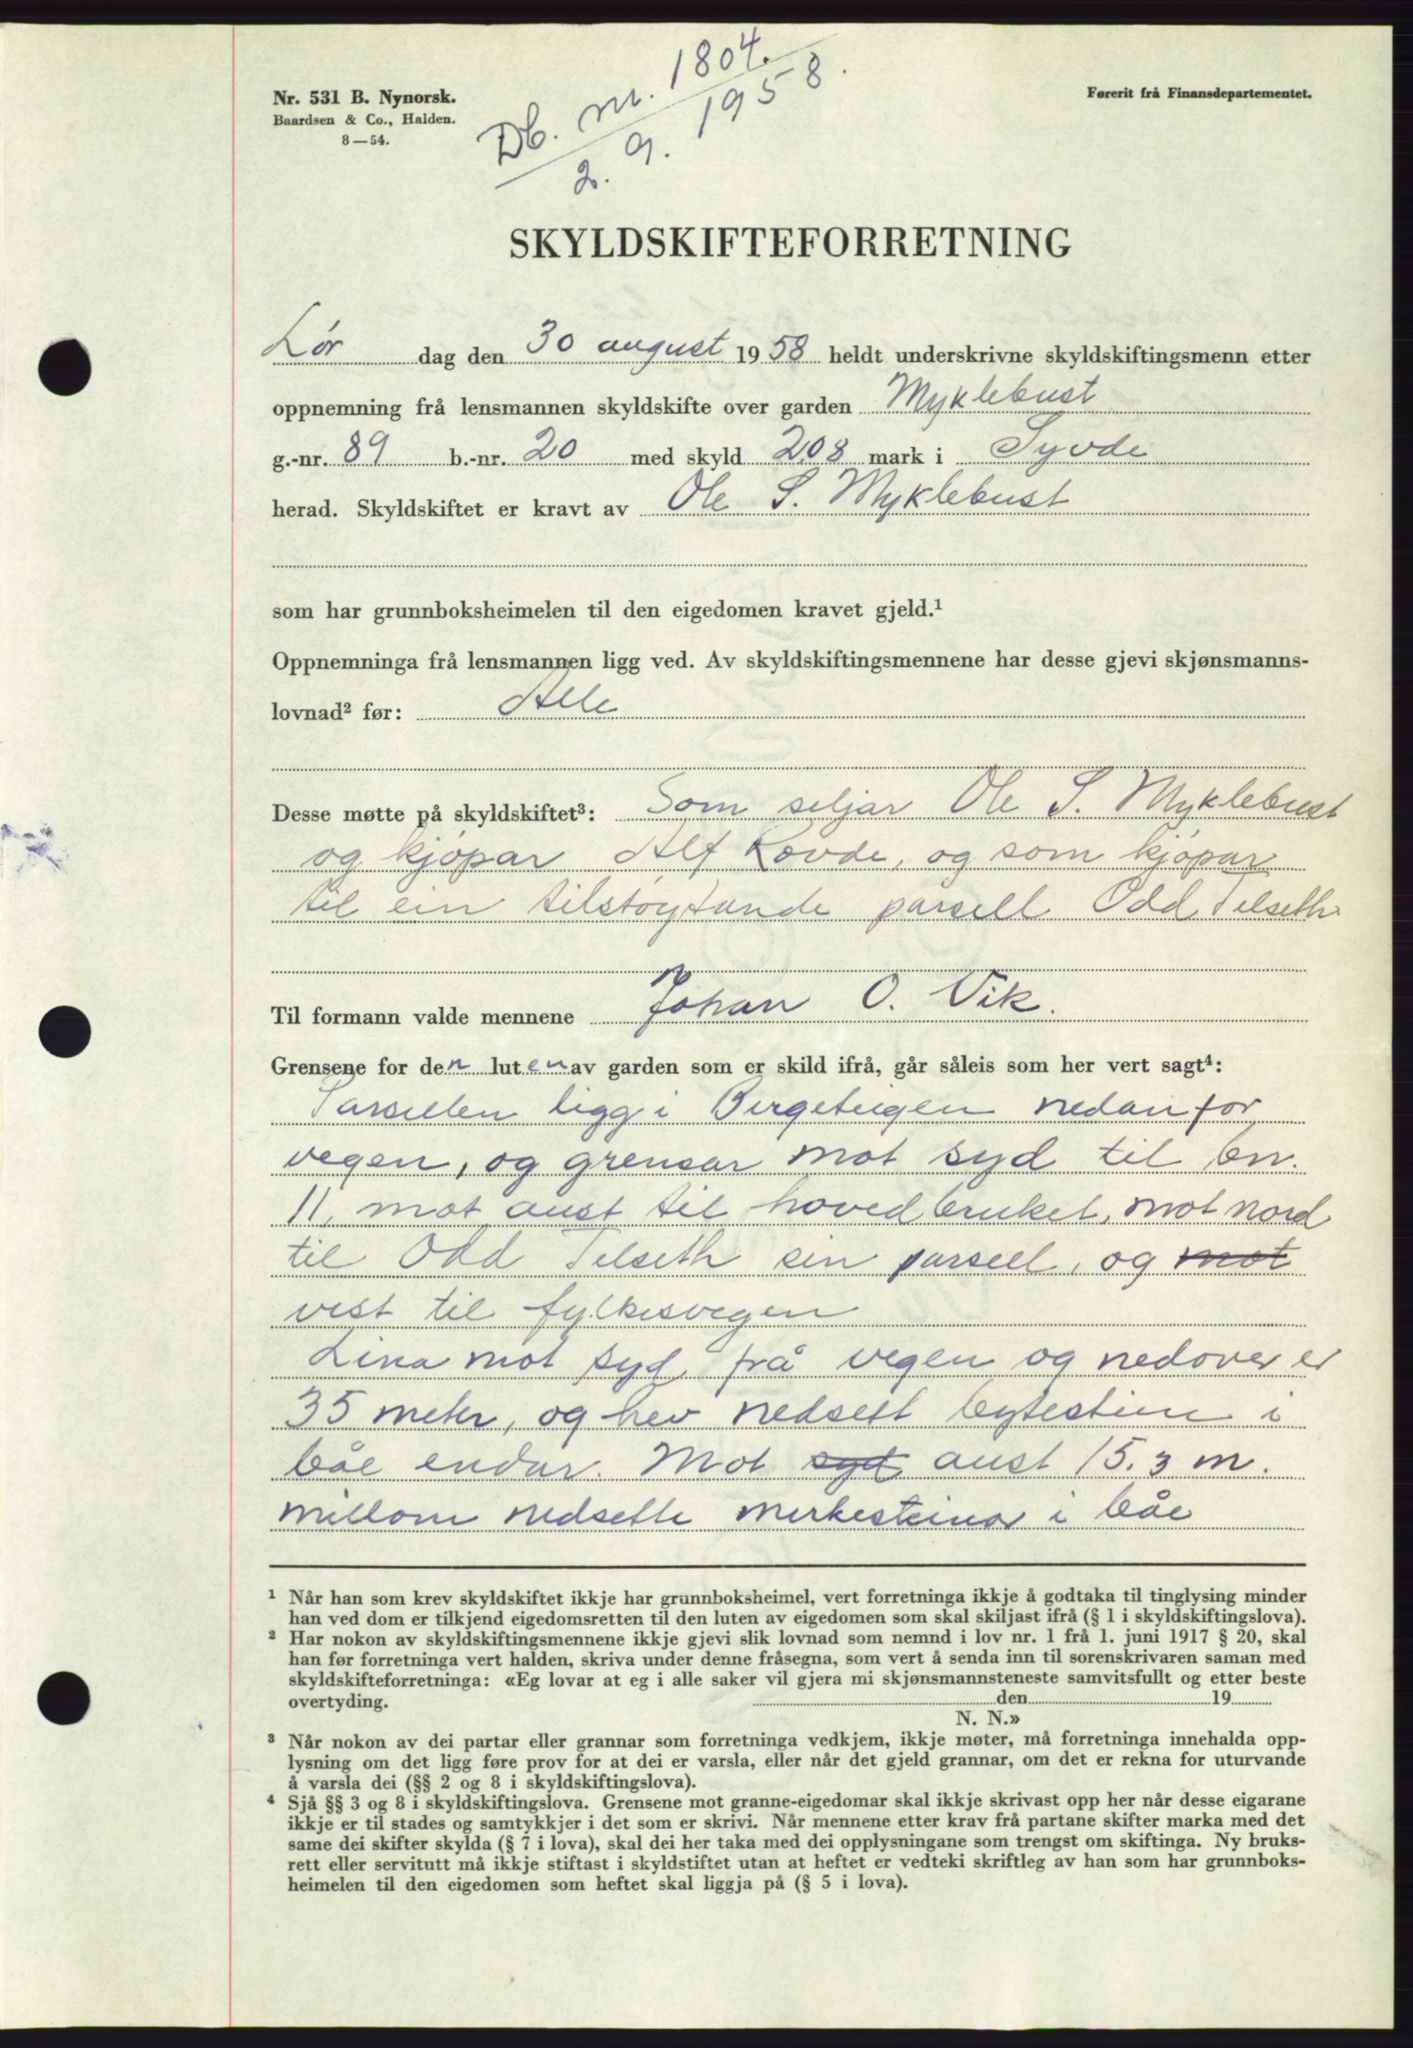 Db. nr. 1804.
2. 9. 1958.
Nr. 531 B. Nynorsk.
Baardsen & Co., Halden.
8—54.
Førerit frå Finansdepartementet.
SKYLDSKIFTEFORRETNING
Lør dag den 30 august 1958 heldt underskrivne skyldskiftingsmenn etter
oppnemning frå lensmannen skyldskifte over garden Myklebust
g.-nr. 89 b.-nr. 20 med skyld 2.08 mark i Syvde
herad. Skyldskiftet er kravt av Ole S. Myklebust
som har grunnboksheimelen til den eigedomen kravet gjeld.¹
Oppnemninga frå lensmannen ligg ved. Av skyldskiftingsmennene har desse gjevi skjønsmanns-
lovnad² før: Alle
Desse møtte på skyldskiftet³: Som seljar Ole S. Myklebust
og kjøpar Alf Rovde, og som kjøpar
til ein tilstøytande parsell Odd Telseth
Til formann valde mennene Johan O. Vik.
Grensene for den luten av garden som er skild ifrå, går såleis som her vert sagt⁴:
Parsellen ligg i Bergeteigen nedanfor
vegen, og grensar mot syd til bn.
11, mot aust til hovedbruket, mot nord
til Odd Telseth sin parsell, og mot
vest til fylkesvegen
Lina mot syd frå vegen og nedover er
35 meter, og hev nedsett bytestein i
båe endar. Mot syd aust 15.3 m.
millom nedsette merkesteinar i båe
¹ Når han som krev skyldskiftet ikkje har grunnboksheimel, vert forretninga ikkje å godtaka til tinglysing minder
han ved dom er tilkjend eigedomsretten til den luten av eigedomen som skal skiljast ifrå (§ 1 i skyldskiftingslova).
² Har nokon av skyldskiftingsmennene ikkje gjevi slik lovnad som nemnd i lov nr. 1 frå 1. juni 1917 § 20, skal
han før forretninga vert halden, skriva under denne fråsegna, som vert å senda inn til sorenskrivaren saman med
skyldskifteforretninga: «Eg lovar at eg i alle saker vil gjera mi skjønsmannsteneste samvitsfullt og etter beste
overtyding. den 19
N. N.»
³ Når nokon av dei partar eller grannar som forretninga vedkjem, ikkje møter, må forretninga innehalda opp-
lysning om det ligg føre prov for at dei er varsla, eller når det gjeld grannar, om det er rekna for uturvande
å varsla dei (§§ 2 og 8 i skyldskiftingslova).
⁴ Sjå §§ 3 og 8 i skyldskiftingslova. Grensene mot granne-eigedomar skal ikkje skrivast opp her når desse eigarane
ikkje er til stades og samtykkjer i det som er skrivi. Når mennene etter krav frå partane skifter marka med det
same dei skifter skylda (§ 7 i lova), skal dei her taka med dei opplysningane som trengst om skiftinga. Ny bruks-
rett eller servitutt må ikkje stiftast i skyldstiftet utan at heftet er vedteki skriftleg av han som har grunnboks-
heimelen til den eigedomen som heftet skal liggja på (§ 5 i lova).